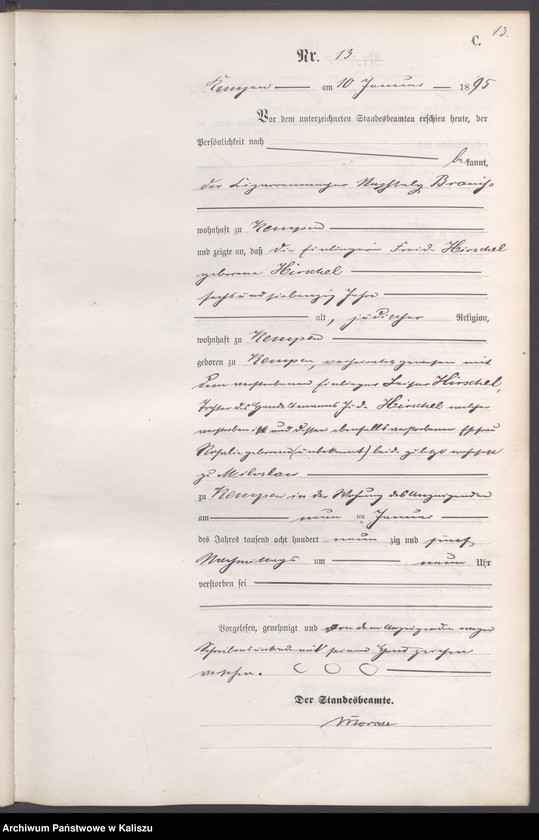 13.
C.
Nr. 13.
Kempen am 10 Januar 1895
Vor dem unterzeichneten Standesbeamten erschien heute, der
Persönlichkeit nach
bekannt,
der Cigarrenmacher
wohnhaft zu Kempen
und zeigte an, daß die Einliegerin Hirschel
geborene Hirschel
sechsundsiebenzig Jahre
alt, jüdischer Religion,
wohnhaft zu Kempen
geboren zu Kempen, verheiratet gewesen mit
dem verstorbenen Einlieger Hirschel,
Tochter des Handelsmanns Hirschel welcher
verstorben ist und dessen ebenfalls verstorbenen Ehefrau
Rosalie geborene (unbekannt) beide zuletzt
zu Miloslaw
zu Kempen in der Wohnung des Anzeigenden
am neun ten Januar
des Jahres tausend acht hundert neun zig und fünf
Nachmittags um neun Uhr
verstorben sei
Vorgelesen, genehmigt und von dem Anzeigenden wegen
Schreibensunkunde mit seinem Handzeichen
versehen. O O O
Der Standesbeamte.
Archiwum Państwowe w Kaliszu